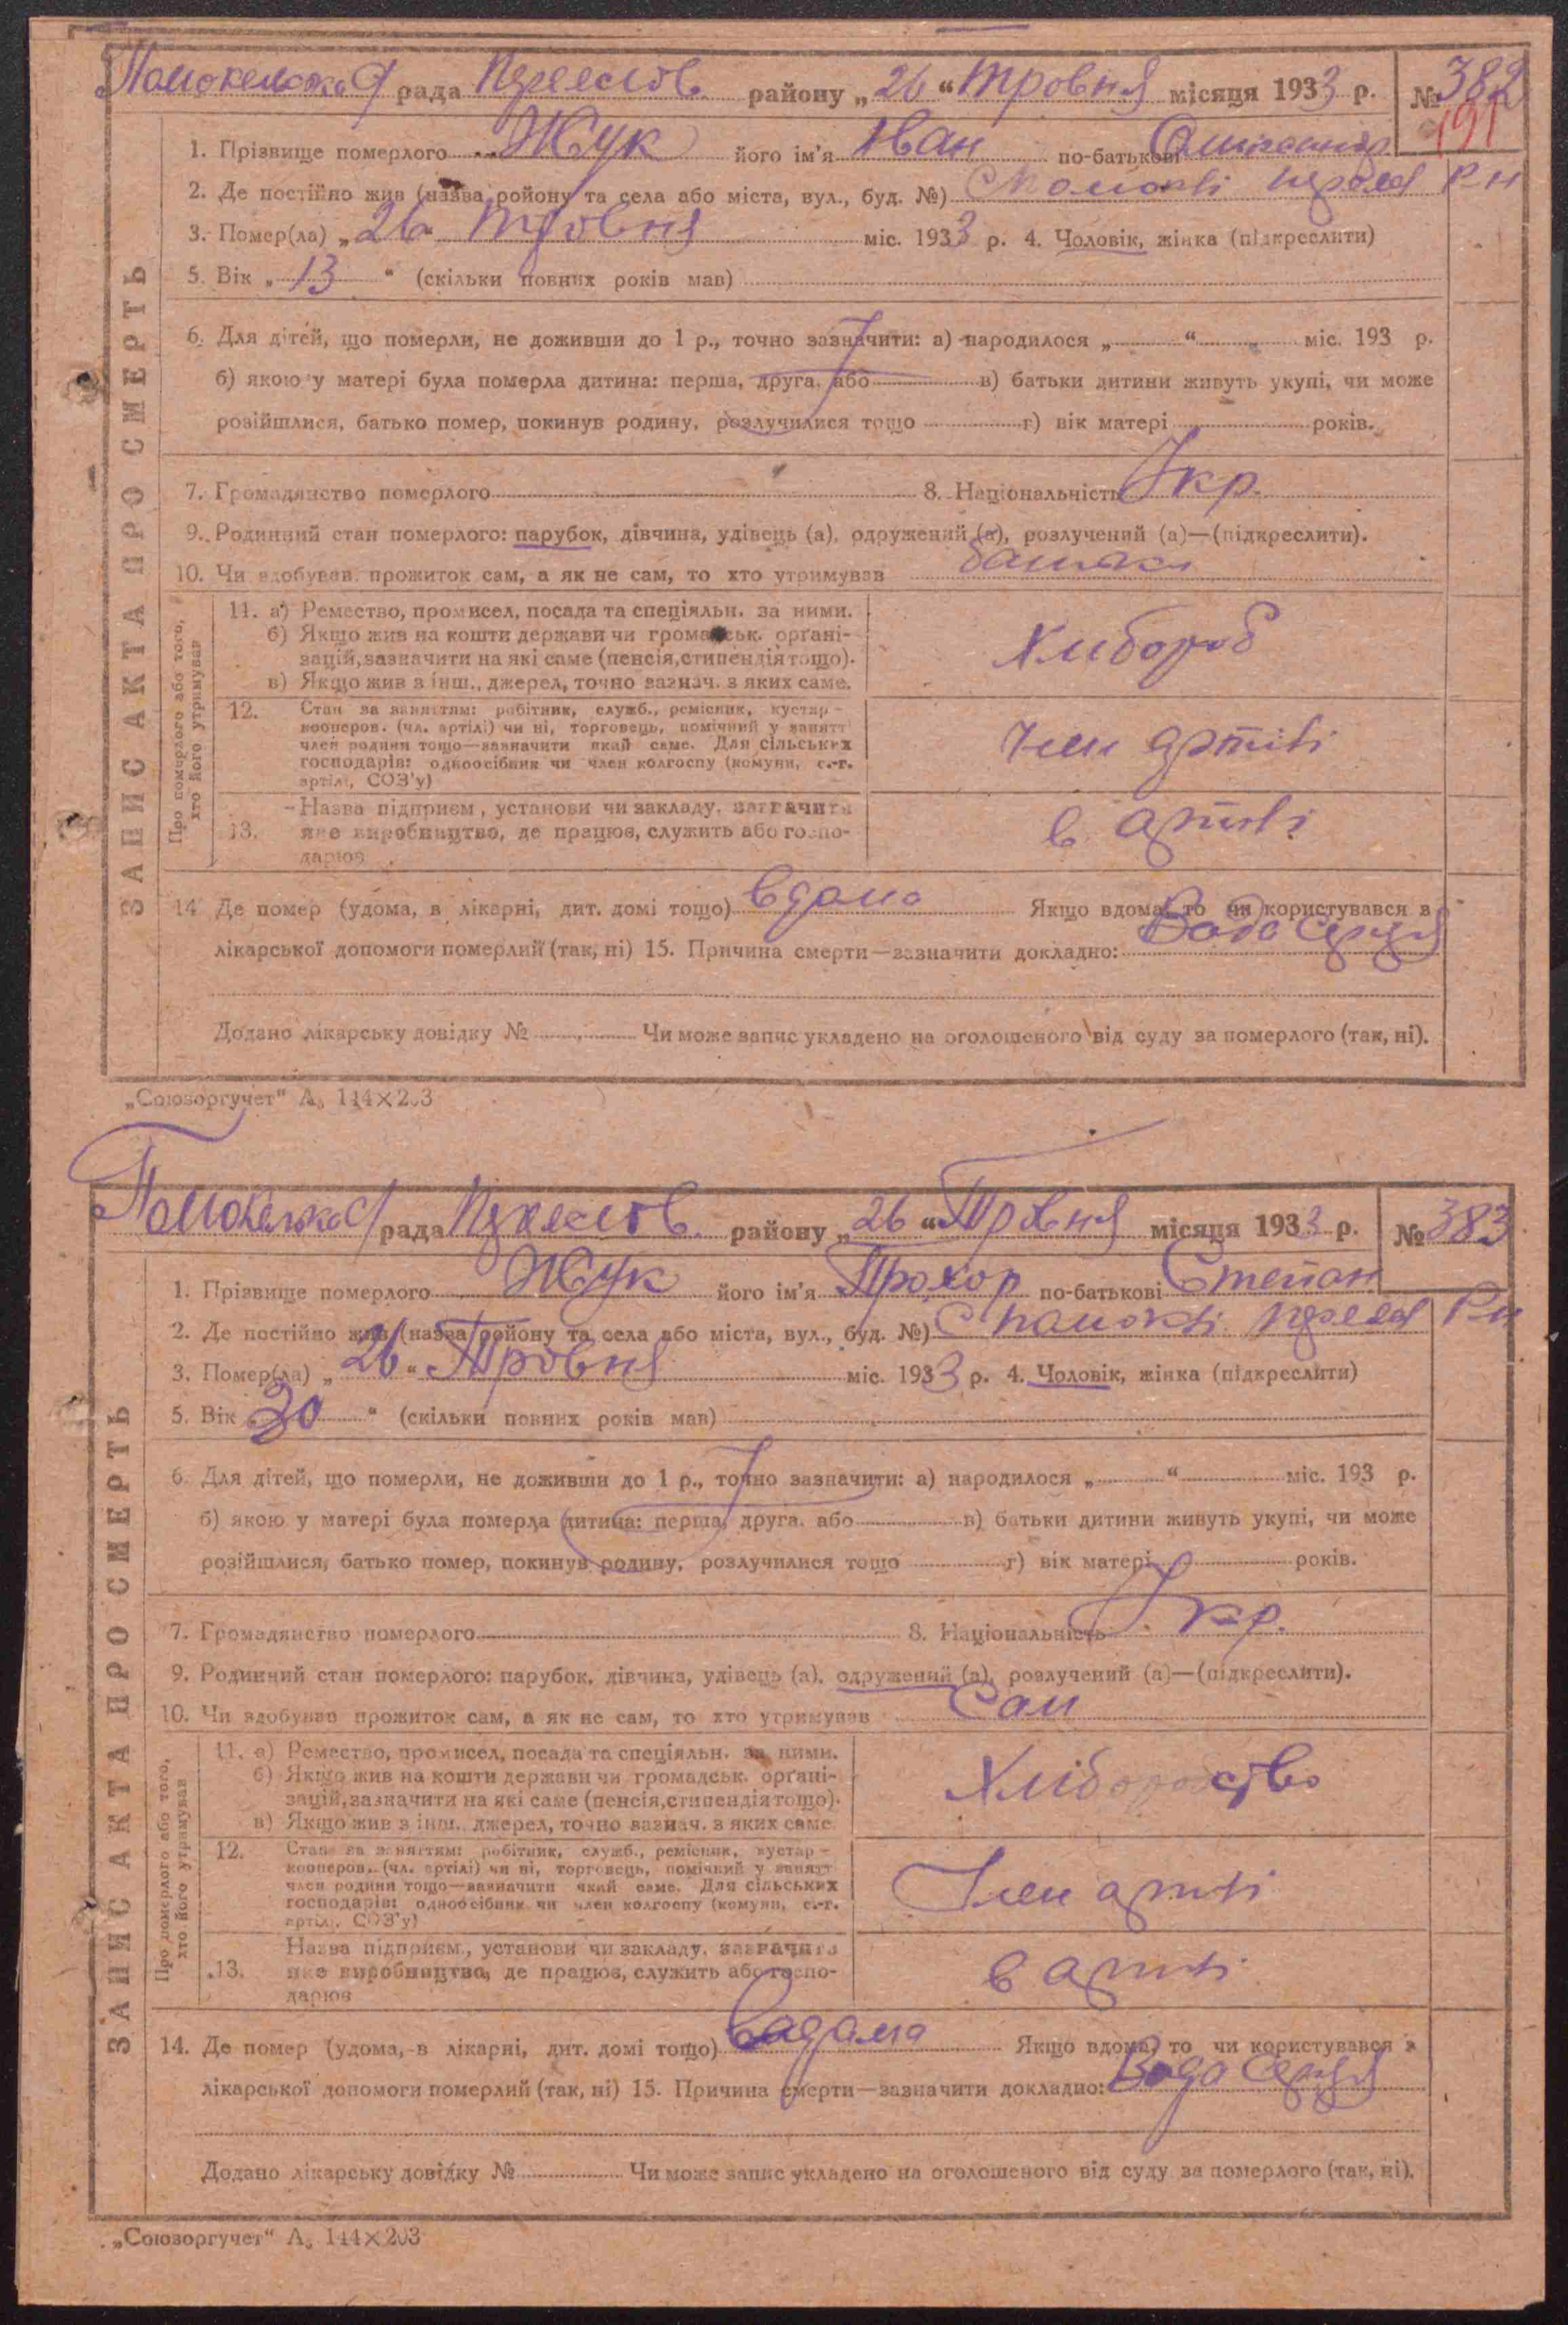 Помокельська с/рада Переяслов. району „26“ Тровня місяця 1933 р. № 382
191
1. Прізвище померлого Жук його ім'я Иван по-батькові
2. Де постійно жив (назва ройону та села або міста, вул., буд. №) с Помоклі Р-н
3. Помер(ла) „26“ Тровня міс. 1933 р. 4. Чоловік, жінка (підкреслити)
5. Вік „13“ (скільки повних років мав)
6. Для дітей, що померли, не доживши до 1 р., точно зазначити: а) народилося „ “ міс. 193 р.
б) якою у матері була померла дитина: перша, друга, або в) батьки дитини живуть укупі, чи може
розійшлися, батько помер, покинув родину, розлучилися тощо г) вік матері років.
7. Громадянство померлого 8. Національність Укр.
9. Родинний стан померлого: парубок, дівчина, удівець (а), одружений (а), розлучений (а)—(підкреслити).
10. Чи здобував прожиток сам, а як не сам, то хто утримував батьки
ЗАПИС АКТА ПРО СМЕРТЬ
Про померлого або того,
хто його утримував
11. а) Ремество, промисел, посада та спеціяльн. за ними.
б) Якщо жив на кошти держави чи громадськ. орґані-
зацій, зазначити на які саме (пенсія, стипендія тощо).
в) Якщо жив з інш., джерел, точно зазнач. з яких саме.
Хлибороб
12. Стан за заняттям: робітник, служб., ремісник, кустар-
кооперов. (чл. артілі) чи ні, торговець, помічний у занятт
член родини тощо—зазначити який саме. Для сільських
господарів: одноосібник чи член колгоспу (комуни, с.-г.
артілі, СОЗ'у)
Член артілі
13. Назва підприєм., установи чи закладу, зазначити
яке виробництво, де працює, служить або госпо-
дарює
в артілі
14. Де помер (удома, в лікарні, дит. домі тощо) вдома Якщо вдома, то чи користувався з
лікарської допомоги померлий (так, ні) 15. Причина смерти—зазначити докладно: Вада серця
Додано лікарську довідку № Чи може запис укладено на оголошеного від суду за померлого (так, ні).
„Союзоргучет“ А₅ 144×203
Помокельська с/рада Переяслов. району „26“ Тровня місяця 1933 р. № 383
1. Прізвище померлого Жук його ім'я Прохор по-батькові Степан
2. Де постійно жив (назва ройону та села або міста, вул., буд. №) с Помоклі Р-н
3. Помер(ла) „26“ Тровня міс. 1933 р. 4. Чоловік, жінка (підкреслити)
5. Вік „30“ (скільки повних років мав)
6. Для дітей, що померли, не доживши до 1 р., точно зазначити: а) народилося „ “ міс. 193 р.
б) якою у матері була померла дитина: перша, друга, або в) батьки дитини живуть укупі, чи може
розійшлися, батько помер, покинув родину, розлучилися тощо г) вік матері років.
7. Громадянство померлого 8. Національність Укр.
9. Родинний стан померлого: парубок, дівчина, удівець (а), одружений (а), розлучений (а)—(підкреслити).
10. Чи здобував прожиток сам, а як не сам, то хто утримував Сам
ЗАПИС АКТА ПРО СМЕРТЬ
Про померлого або того,
хто його утримував
11. а) Ремество, промисел, посада та спеціяльн. за ними.
б) Якщо жив на кошти держави чи громадськ. орґані-
зацій, зазначити на які саме (пенсія, стипендія тощо).
в) Якщо жив з інш., джерел, точно зазнач. з яких саме.
Хліборобство
12. Стан за заняттям: робітник, служб., ремісник, кустар-
кооперов. (чл. артілі) чи ні, торговець, помічний у занятт
член родини тощо—зазначити який саме. Для сільських
господарів: одноосібник чи член колгоспу (комуни, с.-г.
артілі, СОЗ'у)
Член артілі
13. Назва підприєм., установи чи закладу, зазначити
яке виробництво, де працює, служить або госпо-
дарює
в артілі
14. Де помер (удома, в лікарні, дит. домі тощо) вдома Якщо вдома, то чи користувався з
лікарської допомоги померлий (так, ні) 15. Причина смерти—зазначити докладно: Вада серця
Додано лікарську довідку № Чи може запис укладено на оголошеного від суду за померлого (так, ні).
„Союзоргучет“ А₅ 144×203